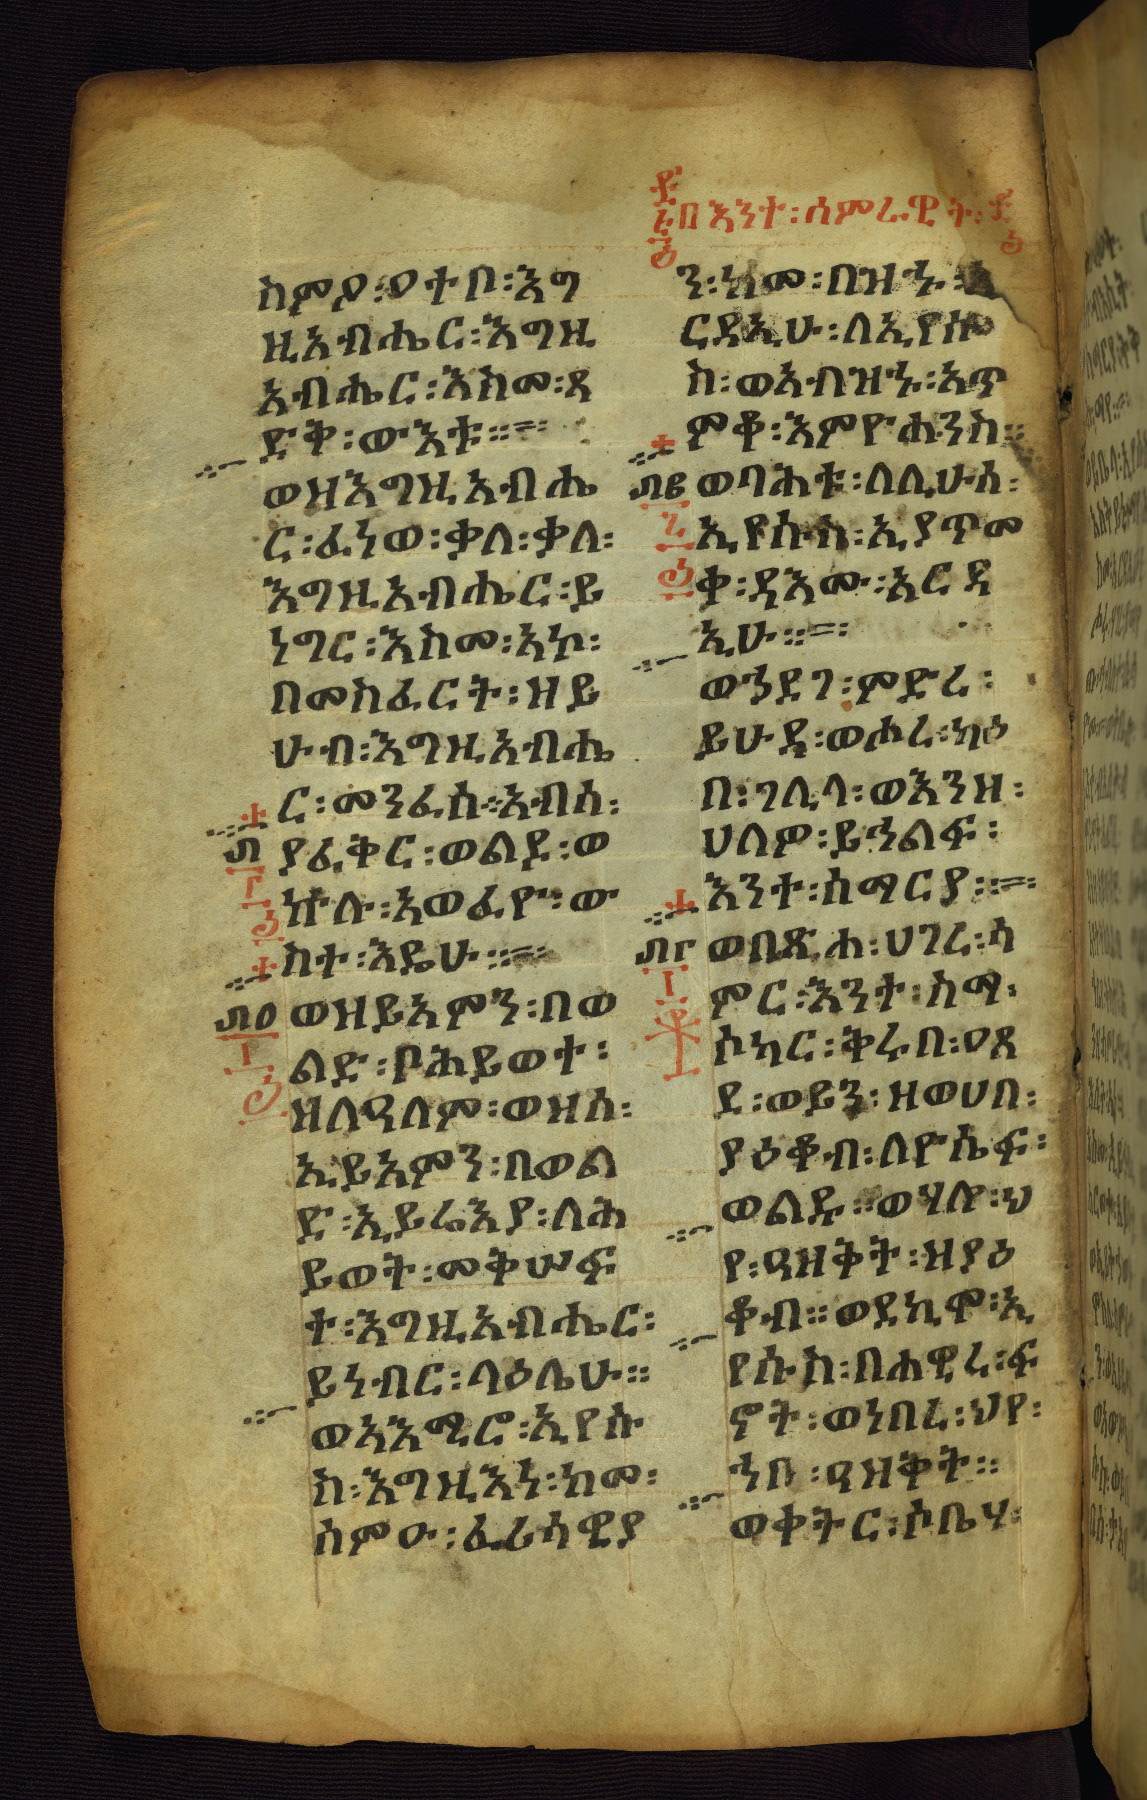 በእንተ፡ሳምራዊት፡
ስምዖ፡ዐተቦ፡እግ
ዚአብሔር፡እግዚ
አብሔር፡እስመ፡ጻ
ድቅ፡ውእቱ።
ወዝእግዚአብሔ
ር፡ፈነወ፡ቃለ፡ቃለ፡
እግዚአብሔር፡ይ
ነግር፡እስመ፡አኮ፡
በመስፈርት፡ዘይ
ሁብ፡እግዚአብሔ
ር፡መንፈሰ፡አብሰ፡
ያፈቅር፡ወልዶ፡ወ
ኵሎ፡አወፈዮ፡ው
ስተ፡እዴሁ።
፴፬
ወዘይአምን፡በወ
ልድ፡ቦሕይወተ፡
ዘለዓለም፡ወዘሰ፡
ኢይአምን፡በወል
ድ፡ኢይሬእያ፡ለሕ
ይወት፡መቅሠፍ
ተ፡እግዚአብሔር፡
ይነብር፡ላዕሌሁ።
ወአእሚሮ፡ኢየሱ
ስ፡እግዚእነ፡ከመ፡
ሰምዑ፡ፈሪሳዊያ
ን፡ከመ፡በዝኁ፡
ርዳኢሁ፡ለኢየሱ
ስ፡ወአብዝኁ፡አጥ
ምቆ፡እምዮሐንስ።
፴፭
ወባሕቱ፡ለሊሁሰ፡
ኢየሱስ፡ኢያጥመ
ቀ፡ዳእሙ፡አርዳ
ኢሁ።
ወኀደገ፡ምድረ፡
ይሁዳ፡ወሖረ፡ካዕ
በ፡ገሊላ፡ወእንዘ፡
ሀለዎ፡ይኀልፍ፡
እንተ፡ሰማርያ።
፴፫
ወበጽሐ፡ሀገረ፡ሳ
ምር፡እንተ፡ስማ፡
ሶካር፡ቅሩበ፡ዐጸ
ደ፡ወይን፡ዘወሀበ፡
ያዕቆብ፡ለዮሴፍ፡
ወልዱ።ወሃሎ፡ህ
የ፡ዓዘቅት፡ዘያዕ
ቆብ።ወደኪሞ፡ኢ
የሱስ፡በሐዊረ፡ፍ
ኖት፡ወነበረ፡ህየ፡
ኀበ፡ዓዘቅት።
ወቀትር፡ሶቤሃ፡